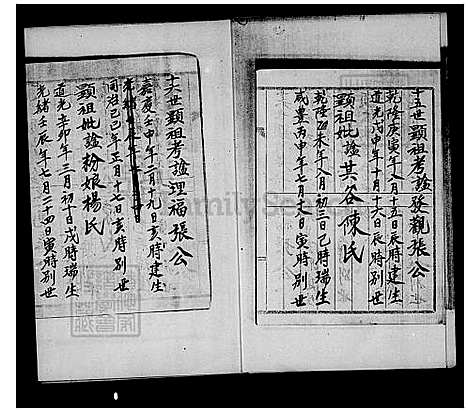 十五世顕祖考諡發觀張公
乾隆庚寅年八月十五日辰時建生
道光戊申年十月十六日辰時別世
顕祖妣諡其谷陳氏
乾隆乙未年八月初三日己時瑞生
咸豊丙申年七月十八日寅時別世
十六世顕祖考諡理福張公
嘉慶壬申年二月十九日亥時建生
同治己巳年正月十七日亥時別世
顕祖妣諡粉娘楊氏
道光辛卯年三月初十日戌時瑞生
光緒壬辰年七月二十四日寅時別世
FamilySearch